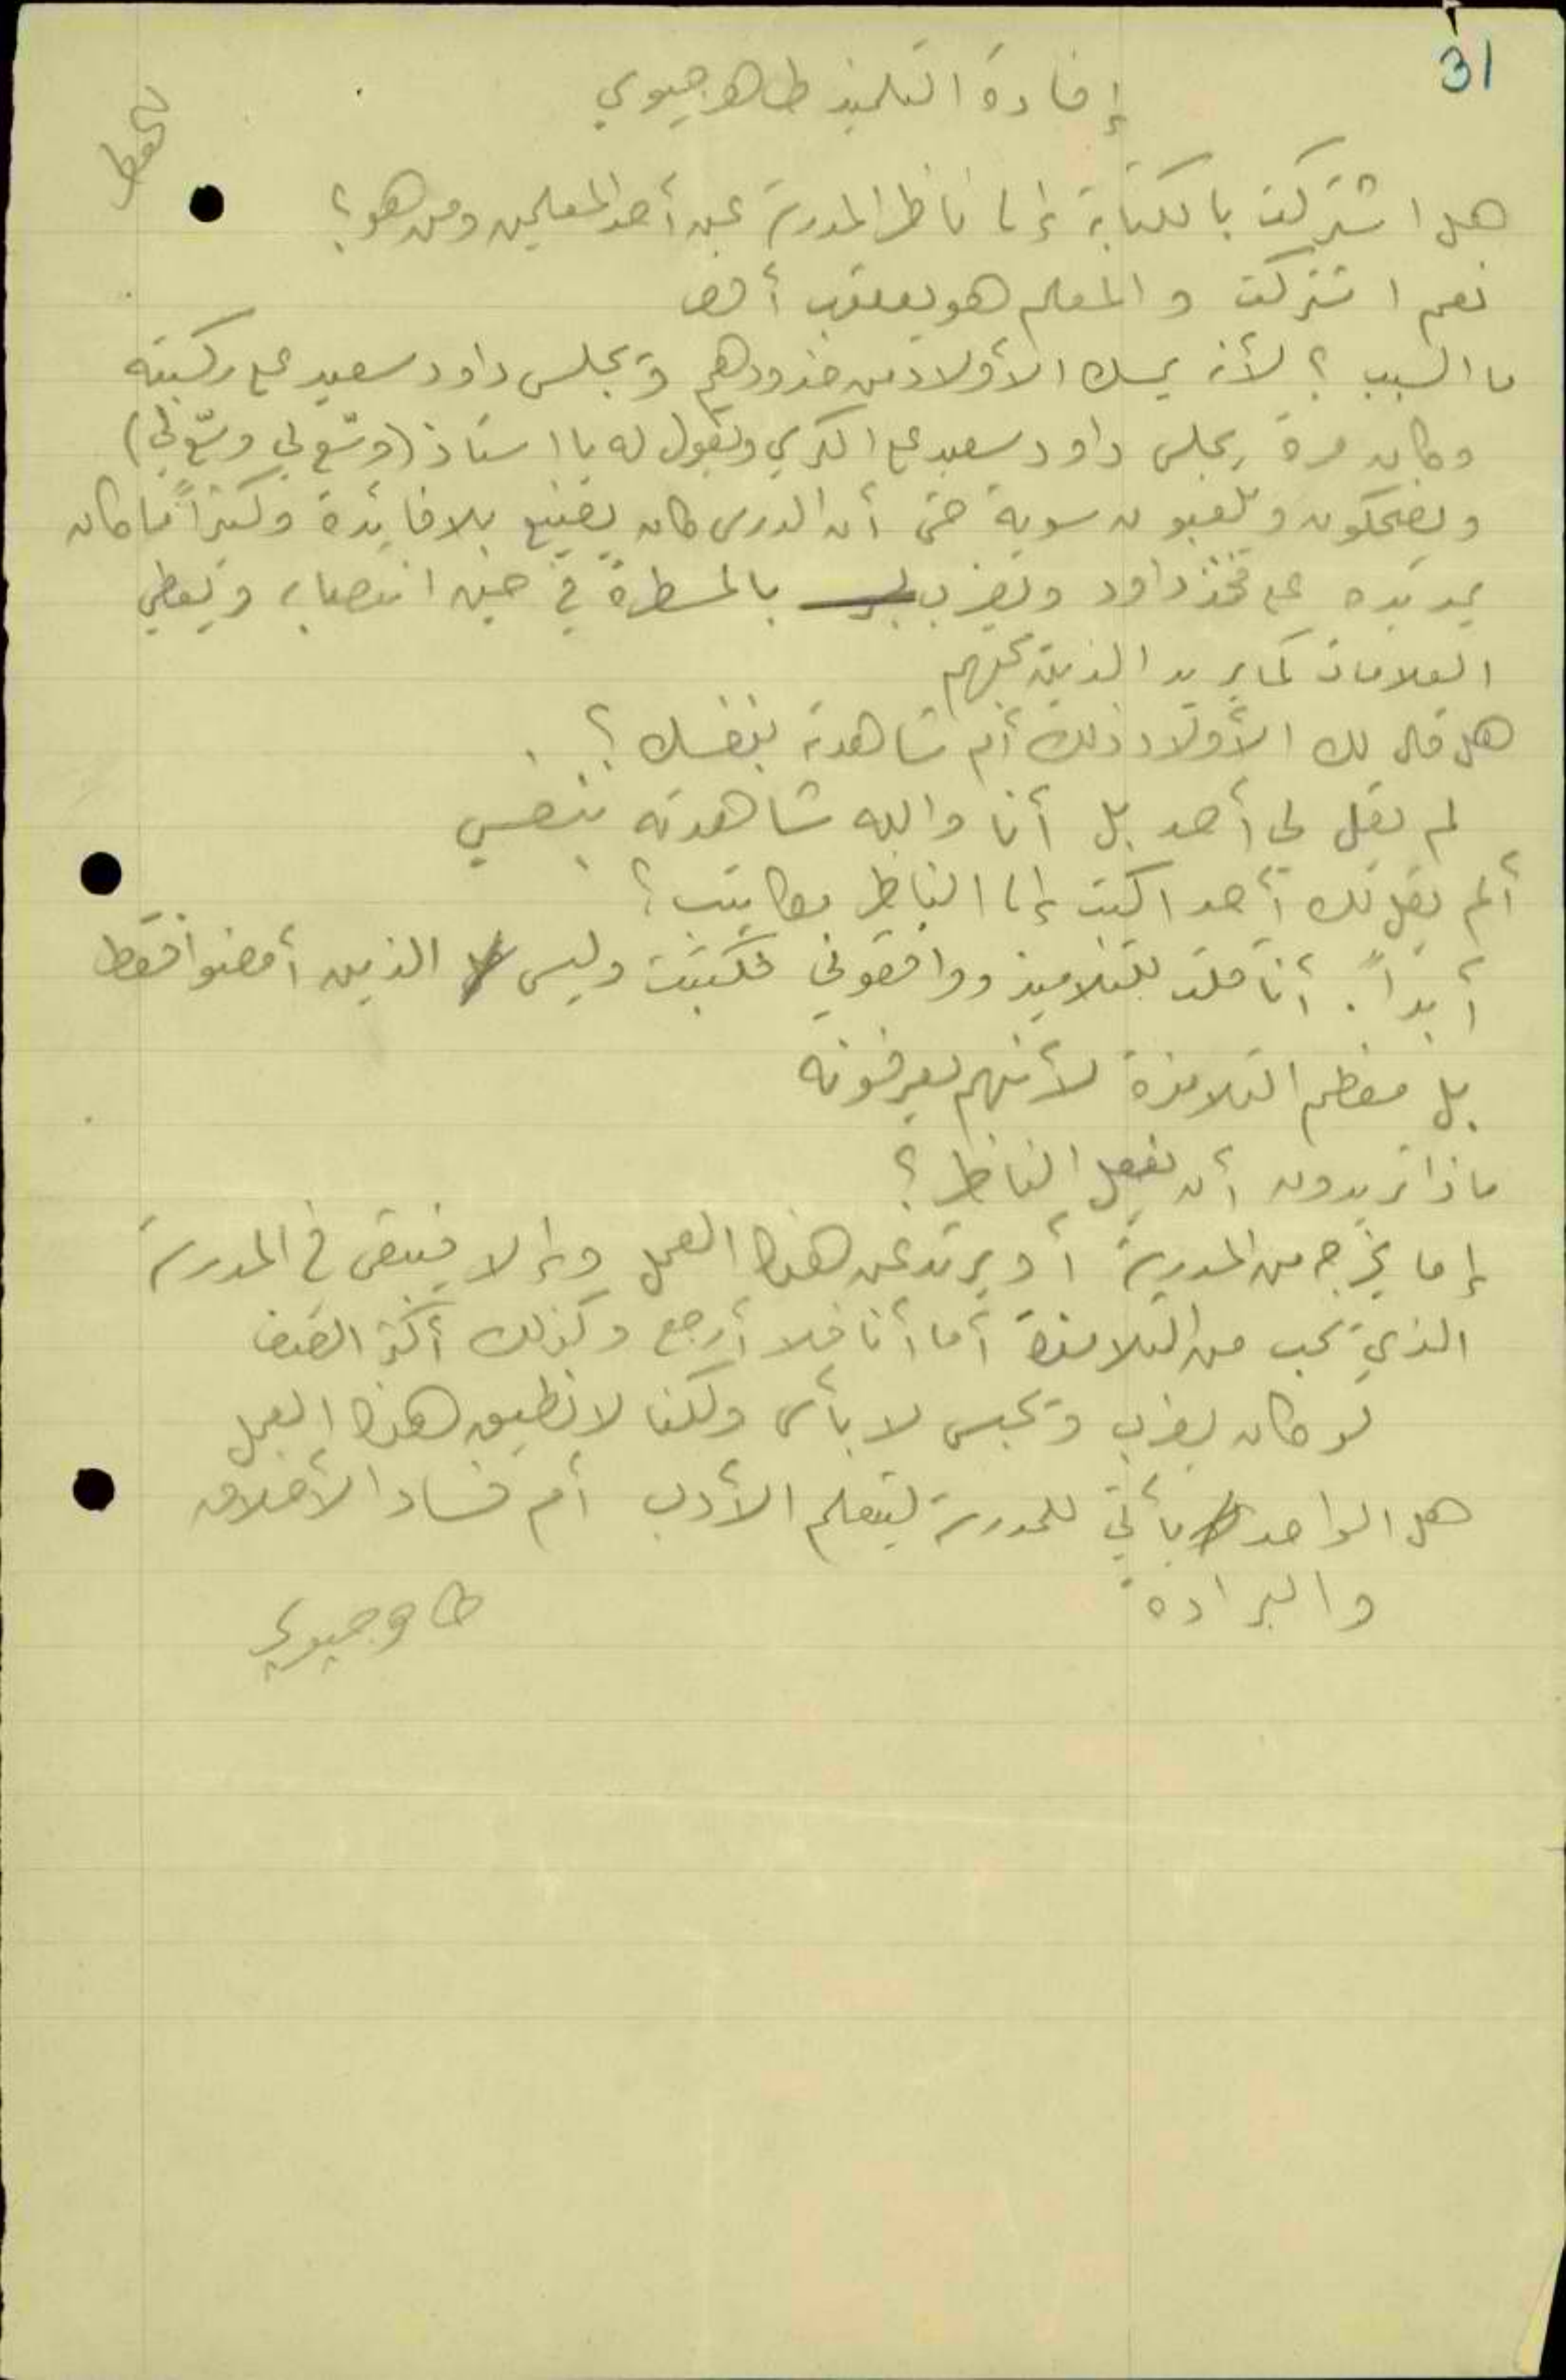 31
إفادة التلميذ طاهر جيوسي
هل اشتركت بالكتابة إلى ناظر المدرسة عن أحد المعلمين ومن هو؟
نعم اشتركت والمعلم هو يعقوب
ما السبب؟ لأنه يمسك الأولاد من خدودهم ويجلس داود سعيد على ركبته
وكان مرة يجلس داود سعيد على الكرسي ويقول له يا استاذ (وسّع لي وسّع لي)
ويضحكون ويلعبون سوية حتى أن الدرس كان يضيع بلا فائدة وكثيراً ما كان
يمد يده على فخذ داود ويضرب بالمسطرة في حين انتصابه ويعطي
العلامات كما يريد الذين يحبهم
هل قال لك الأولاد ذلك أم شاهدته بنفسك؟
لم يقل لي أحد بل أنا والله شاهدته بنفسي
ألم يقل لك أحد اكتب إلى الناظر
أبداً. أنا قلت للتلاميذ ووافقوني فكتبت وليس الذين أمضوا فقط
بل معظم التلامذة لأنهم يعرفونه
ماذا تريدون أن يفعل الناظر؟
إما يخرج من المدرسة أو يرتد عن هذا العمل وإلا فيبقى في المدرسة
الذي يحب من التلامذة أما أنا فلا أرجع وكذلك أكثر الصف
لو كان يضرب ويحبس لا بأس ولكنا لا نطيق هذا العمل
هل الواحد يأتي للمدرسة ليتعلم الأدب أم فساد الأخلاق
والبرادة
طاهر جيوسي